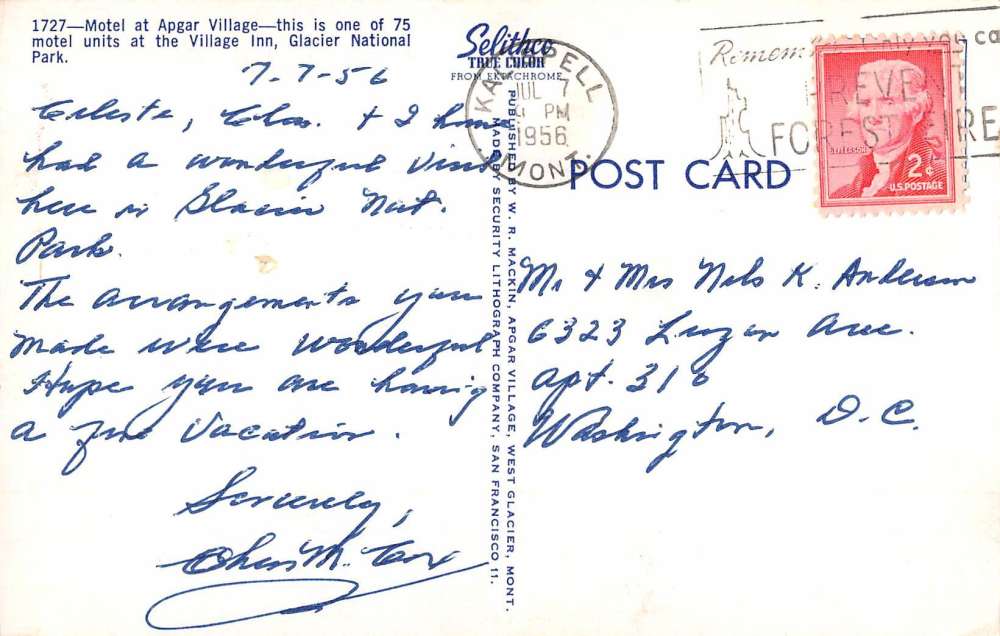 1727—Motel at Apgar Village—this is one of 75
motel units at the Village Inn, Glacier National
Park.
7-7-56
Celeste, Chas. + I have
had a wonderful visit
here in Glacier Nat.
Park.
The arrangements you
made were wonderful
Hope you are having
a fine vacation.
Sincerely,
Chas M. Cox
Selithco
TRUE COLOR
FROM EKTACHROME
PUBLISHED BY W. R. MACKIN, APGAR VILLAGE, WEST GLACIER, MONT.
MADE BY SECURITY LITHOGRAPH COMPANY, SAN FRANCISCO 11.
KALISPELL
JUL 7
PM
1956
MONT.
only you ca
PREVENT
FOREST FIRE
JEFFERSON
2¢
U.S. POSTAGE
POST CARD
Mr + Mrs Nels K. Anderson
6323 Luzon Ave.
apt. 310
Washington, D.C.